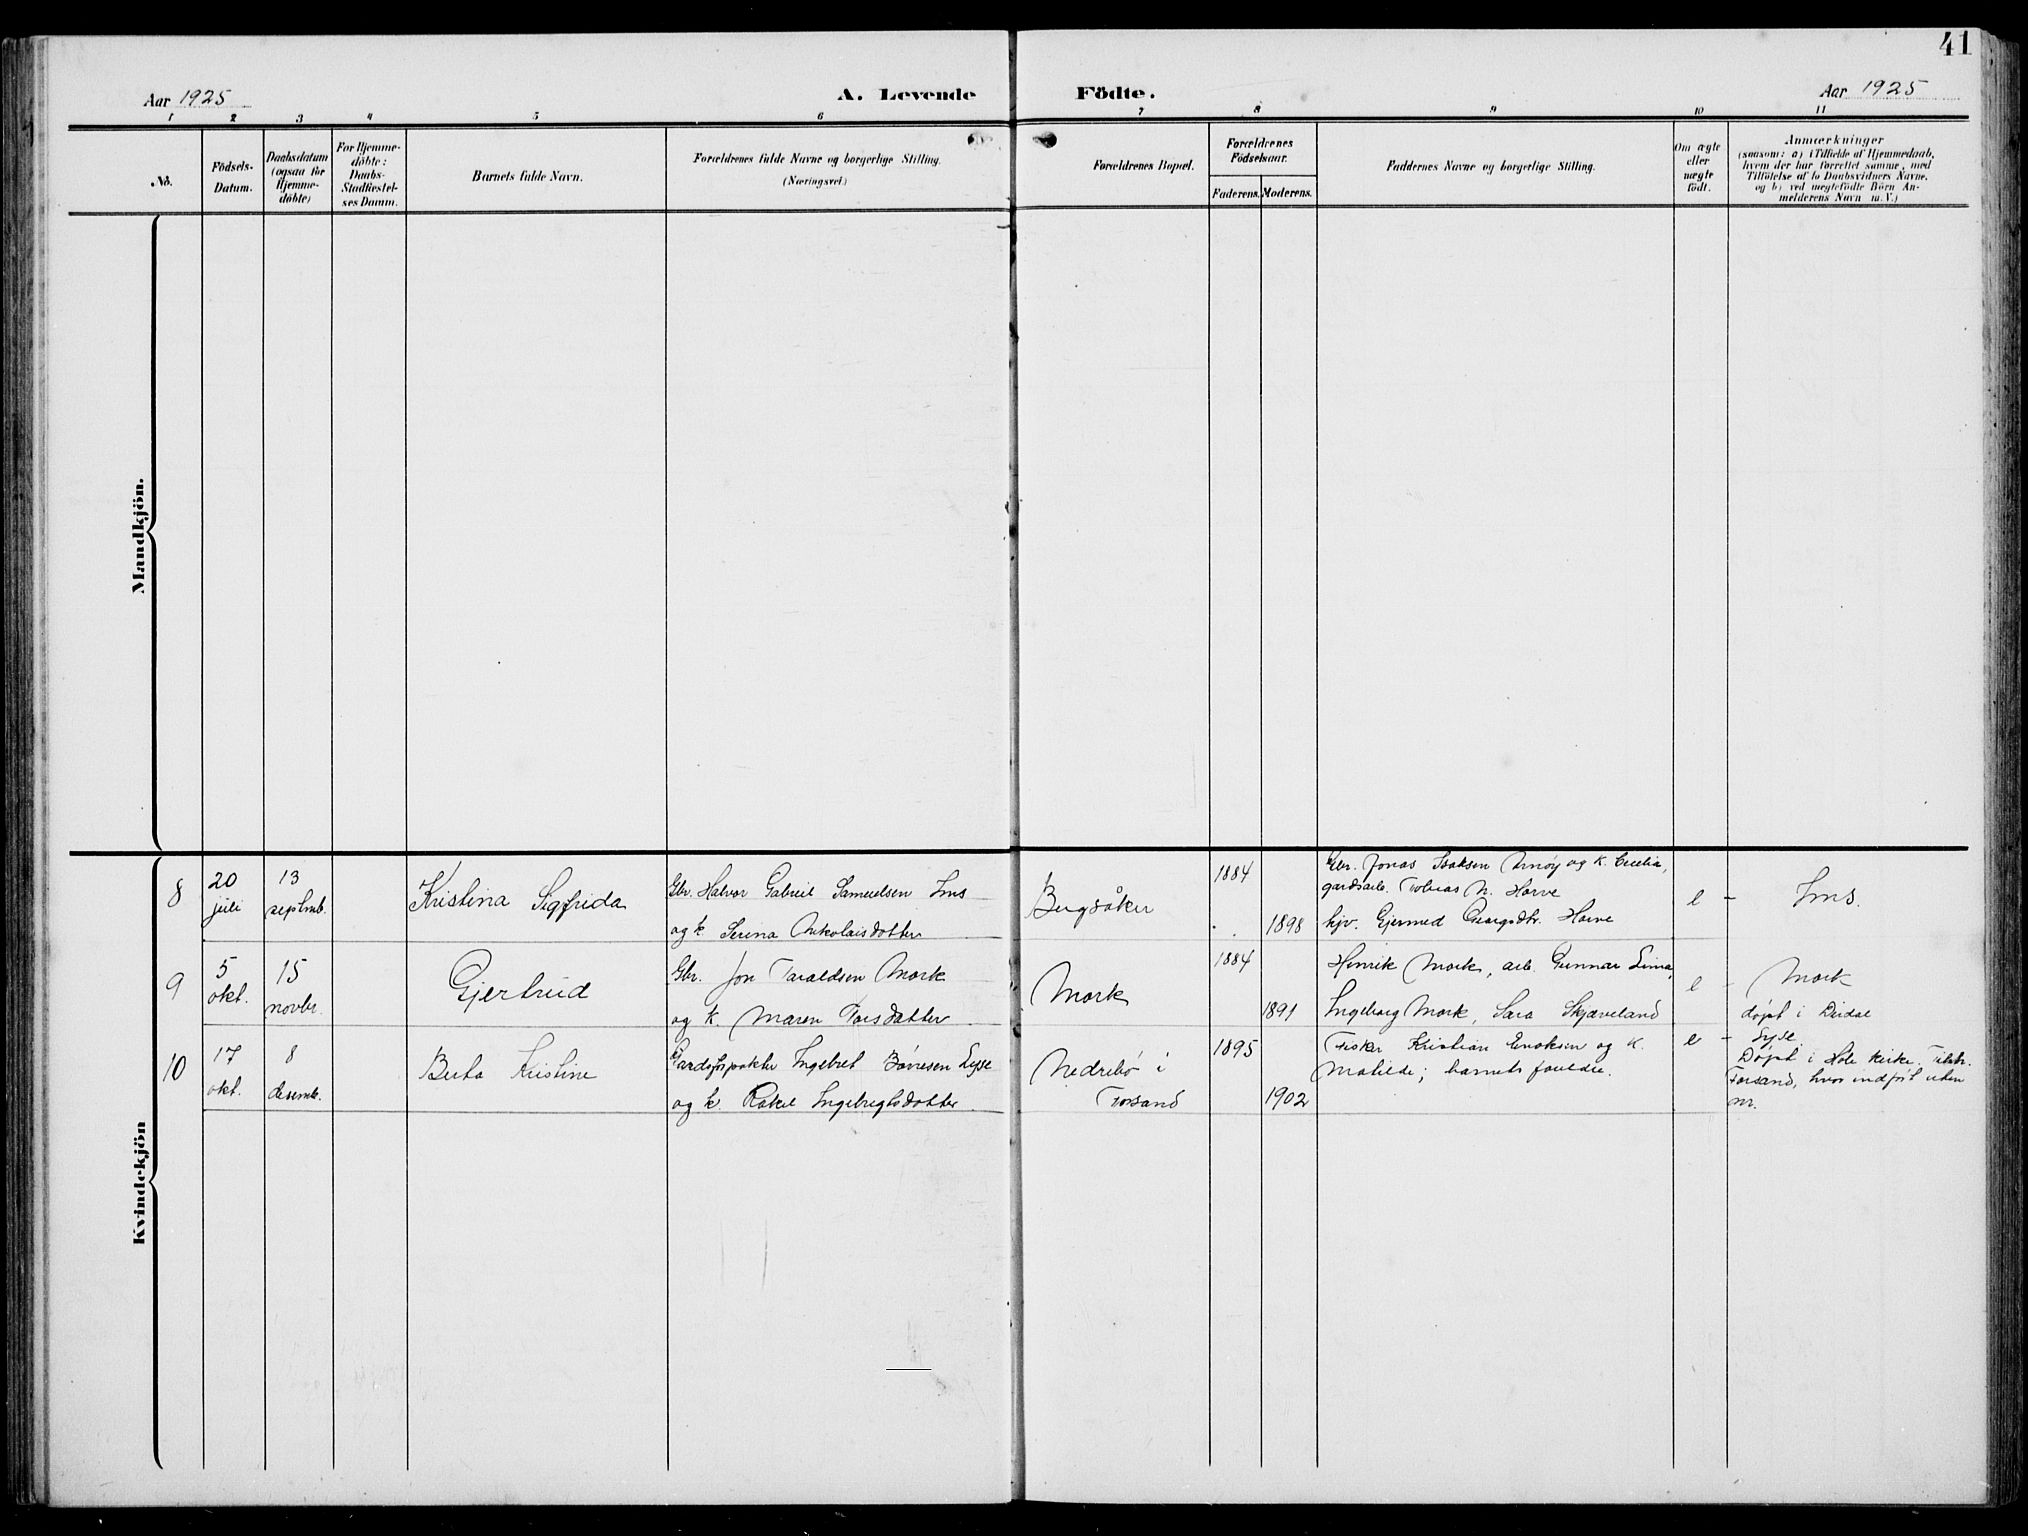 41
Aar 1925
A. Levende
Födte.
Aar 1925
1 2 3 4 5 6 7 8 9 10 11
No.
Födsels-
Datum.
Daabsdatum
(ogsaa for
Hjemme-
döbte)
For Hjemme-
döbte:
Daabs-
Stadfæstel-
ses Datum.
Barnets fulde Navn.
Forældrenes fulde Navne og borgerlige Stilling.
(Næringsvei.)
Forældrenes Bopæl.
Forældrenes
Födselsaar.
Faderens. Moderens.
Faddernes Navne og borgerlige Stilling.
Om ægte
eller
uægte
födt.
Anmærkninger
(saasom: a) i Tilfælde af Hjemmedaab,
hvem der har forrettet samme, med
Tilföielse af to Daabsvidners Navne,
og b) ved uægtefödte Börn An-
melderens Navn m. V.)
Mandkjön.
Kvindekjön
8
20
juli
13
septmb.
Kristina Sigfrida
Gbr. Halvor Gabriel Samuelsen Ims
og k. Serina Nikolaisdotter
Bergsåker
1884
1898
Gbr. Jonas Isaksen Arnøy og k. Cecilia,
gardsarb. Tobias N. Horve
hjv. Gjermed Georgsdtr. Horve
e - Ims.
9
5
okt.
15
novbr.
Gjertrud
Gbr. Jon Taraldsen Mork
og k. Maren Torsdotter
Mork
1884
1891
Henrik Mork, arb. Gunnar Lima,
Ingeborg Mork, Sara Skjæveland
e - Mork
døpt i Dirdal
10
17
okt.
8
desemb.
Berta Kristine
Gardsforpakter Ingebret Børresen Lyse
og k. Rakel Ingebregtsdotter
Nedrebø i
Forsand
1895
1902
Fisker Kristian Enoksen og k.
Matilde; barnets foreldre.
e - Lyse
Døpt i Hole kirke. Tilh.
Forsand, hvor indført uten
nr.